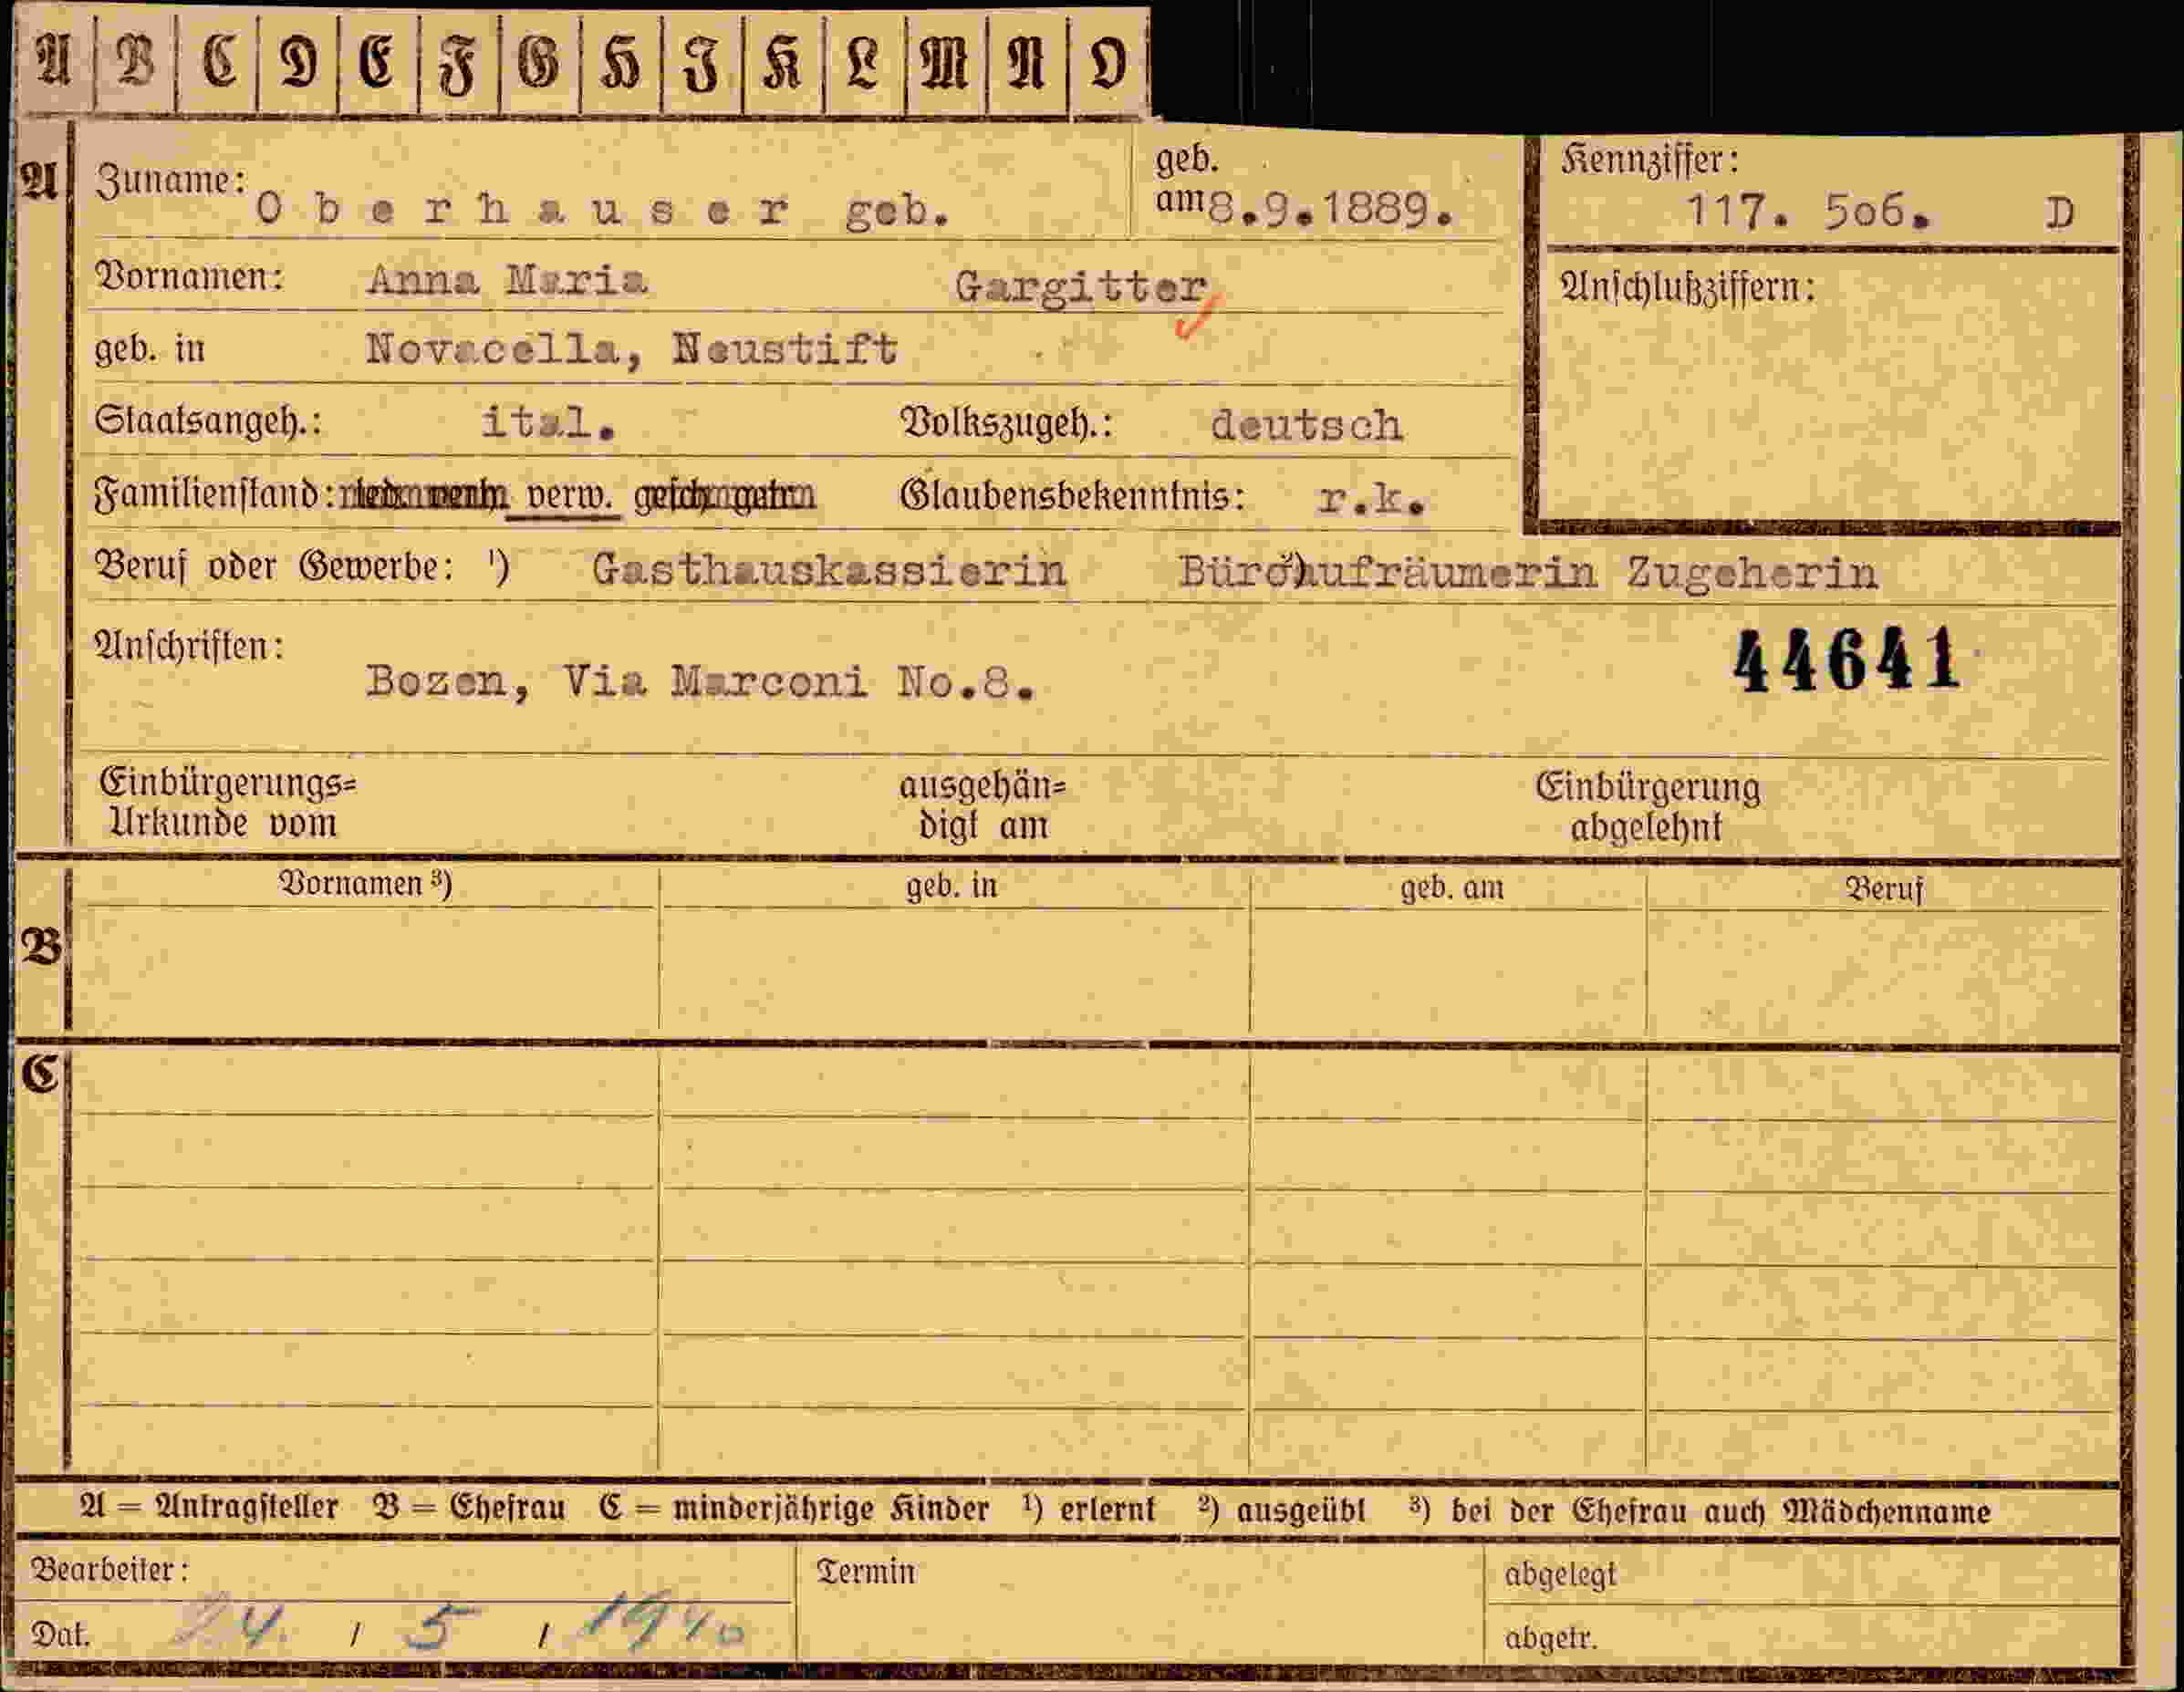 A B C D E F G H I K L M N O
A Zuname: Oberhauser geb. geb. am 8.9.1889. Kennziffer: 117. 506. D
Vornamen: Anna Maria Gargitter Anschlußziffern:
geb. in Novacella, Neustift
Staatsangeh.: ital. Volkszugeh.: deutsch
Familienstand: verw. Glaubensbekenntnis: r.k.
Beruf oder Gewerbe: ¹) Gasthauskassierin Büroaufräumerin Zugeherin
Anschriften: 44641
Bozen, Via Marconi No.8.
Einbürgerungs= ausgehän= Einbürgerung
Urkunde vom digt am abgelehnt
Vornamen ³) geb. in geb. am Beruf
B
C
A = Antragsteller B = Ehefrau C = minderjährige Kinder ¹) erlernt ²) ausgeübt ³) bei der Ehefrau auch Mädchenname
Bearbeiter: Termin abgelegt
Dat. 24. / 5 / 1940 abgetr.